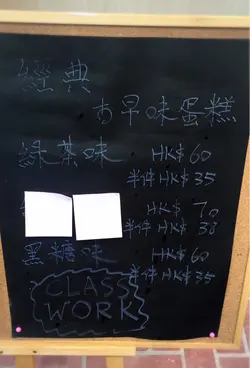 經典
古早味蛋糕
綠茶味 HK$60
半件 HK$35
HK$70
半件 HK$38
黑糖味 HK$60
半件 HK$35
CLASS
WORK